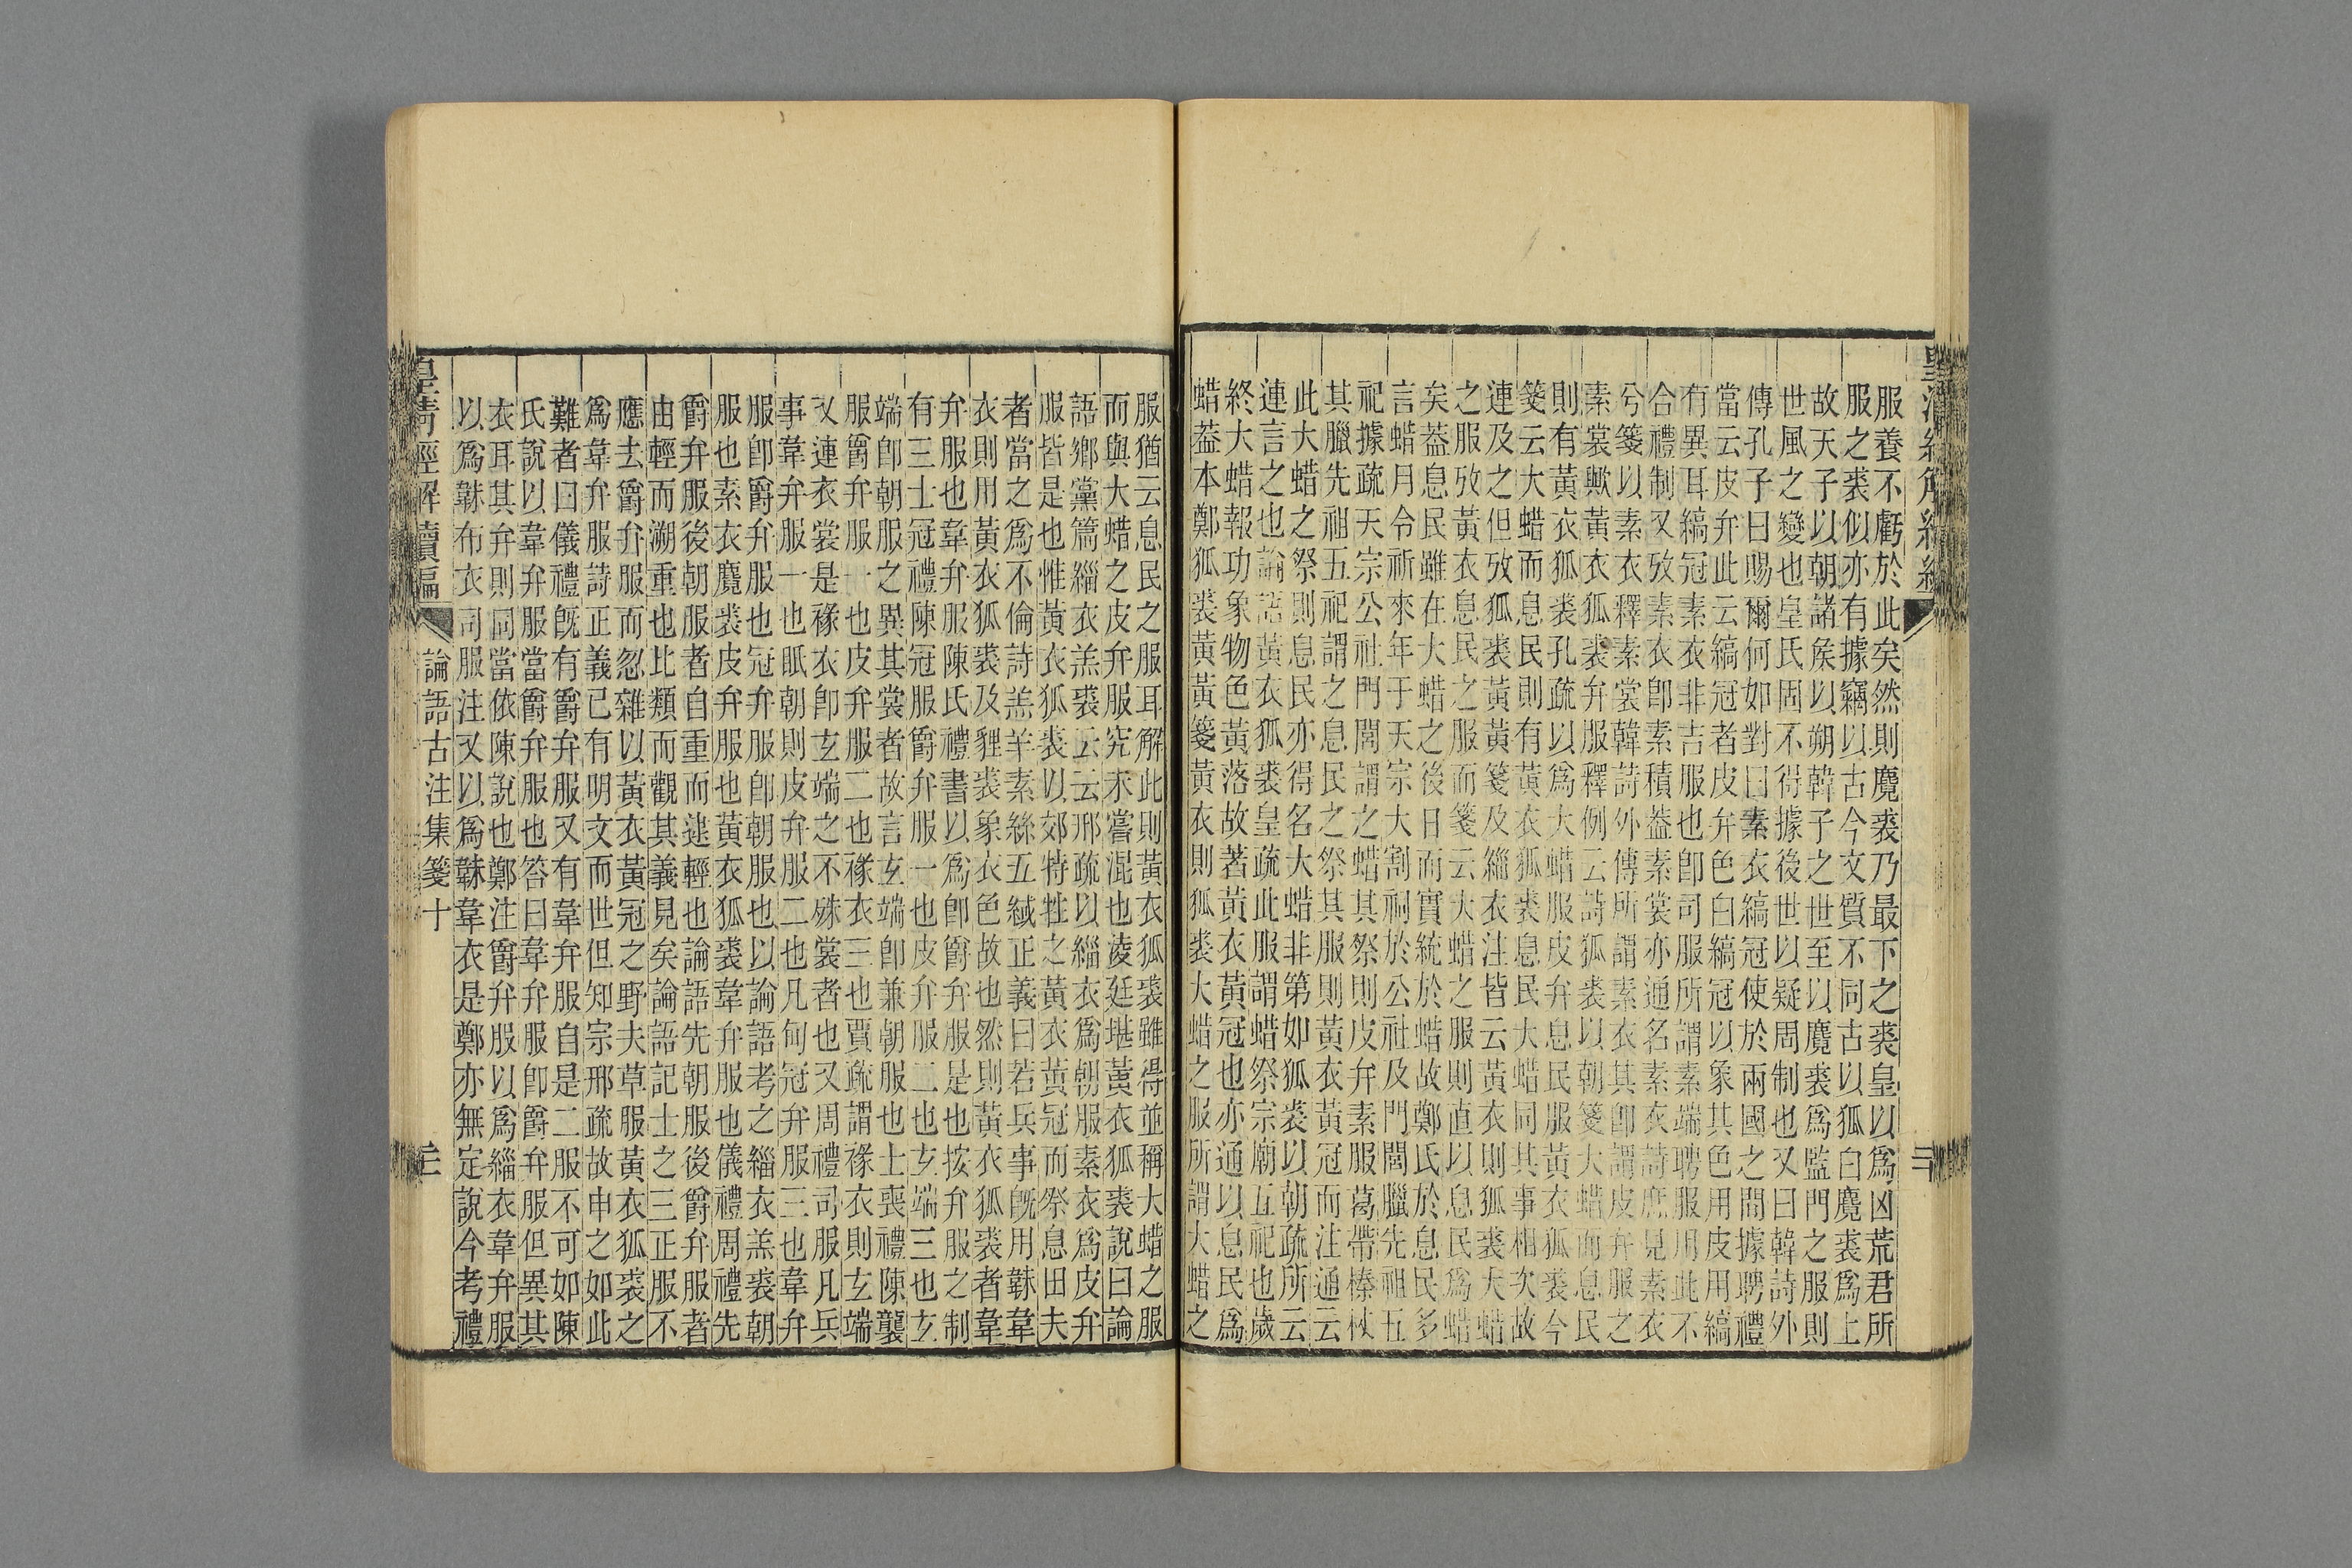 服養不虧於此矣然則麑裘乃最下之裘皇以爲凶荒君所
服之裘似亦有據竊以古今文質不同古以狐白麑裘爲上
故天子以朝諸矦以朔韓子之世至以麑裘爲監門之服則
世風之變也皇氏固不得據後世以疑周制也又曰韓詩外
傳孔子曰賜爾何如對曰素衣縞冠使於兩國之間據聘禮
當云皮弁此云縞冠者皮弁色白縞冠以象其色用皮用縞
有異耳縞冠素衣非吉服也卽司服所謂素端聘服用此不
合禮制又攷素衣卽素積葢素裳亦通名素衣詩庶見素衣
兮箋以素衣釋素裳韓詩外傳所謂素衣其卽謂皮弁服之
素裳歟黃衣狐裘弁服釋例云詩狐裘以朝箋大蜡而息民
則有黃衣狐裘孔疏以爲大蜡服皮弁息民服黃衣狐裘今
箋云大蜡而息民則有黃衣狐裘息民大蜡同其事相次故
連及之但攷狐裘黃黃箋及緇衣注皆云黃衣則狐裘大蜡
之服攷黃衣息民之服而箋云大蜡之服則直以息民爲蜡
矣葢息民雖在大蜡之後日而實統於蜡故鄭氏於息民多
言蜡月令祈來年于天宗大割祠於公社及門閭臘先祖五
祀據疏天宗公社門閭謂之蜡其祭則皮弁素服葛帶榛杖
其臘先祖五祀謂之息民之祭其服則黃衣黃冠而注通云
此大蜡之祭則息民亦得名大蜡非第如狐裘以朝疏所云
連言之也論語黃衣狐裘皇疏此服謂蜡祭宗廟五祀也歲
終大蜡報功象物色黃落故著黃衣黃冠也亦通以息民爲
蜡葢本鄭狐裘黃黃箋黃衣則狐裘大蜡之服所謂大蜡之
服猶云息民之服耳解此則黃衣狐裘雖得並稱大蜡之服
而與大蜡之皮弁服究未嘗混也淩廷堪黃衣狐裘說曰論
語鄉黨篇緇衣羔裘云云邢疏以緇衣爲朝服素衣爲皮弁
服皆是也惟黃衣狐裘以郊特牲之黃衣黃冠而祭息田夫
者當之爲不倫詩羔羊素絲五緎正義曰若兵事旣用韎韋
衣則用黃衣狐裘及貍裘象衣色故也然則黃衣狐裘者韋
弁服也韋弁服陳氏禮書以爲卽爵弁服是也按弁服之制
有三士冠禮陳冠服爵弁服一也皮弁服二也玄端三也玄
端卽朝服之異其裳者故言玄端卽兼朝服也士喪禮陳襲
服爵弁服一也皮弁服二也褖衣三也賈疏謂褖衣則玄端
又連衣裳是褖衣卽玄端之不殊裳者也又周禮司服凡兵
事韋弁服一也眡朝則皮弁服二也凡甸冠弁服三也韋弁
服卽爵弁服也冠弁服卽朝服也以論語考之緇衣羔裘朝
服也素衣麑裘皮弁服也黃衣狐裘韋弁服也儀禮周禮先
爵弁服後朝服者自重而逮輕也論語先朝服後爵弁服者
由輕而溯重也比類而觀其義見矣論語記士之三正服不
應去爵弁服而忽雜以黃衣黃冠之野夫草服黃衣狐裘之
爲韋弁服詩正義已有明文而世但知宗邢疏故申之如此
難者曰儀禮旣有爵弁服又有韋弁服自是二服不可如陳
氏說以韋弁服當爵弁服也答曰韋弁服卽爵弁服但異其
衣耳其弁則同當依陳說也鄭注爵弁服以爲緇衣韋弁服
以爲韎布衣司服注又以爲韎韋衣是鄭亦無定說今考禮
皇清經解續編 論語古注集箋十